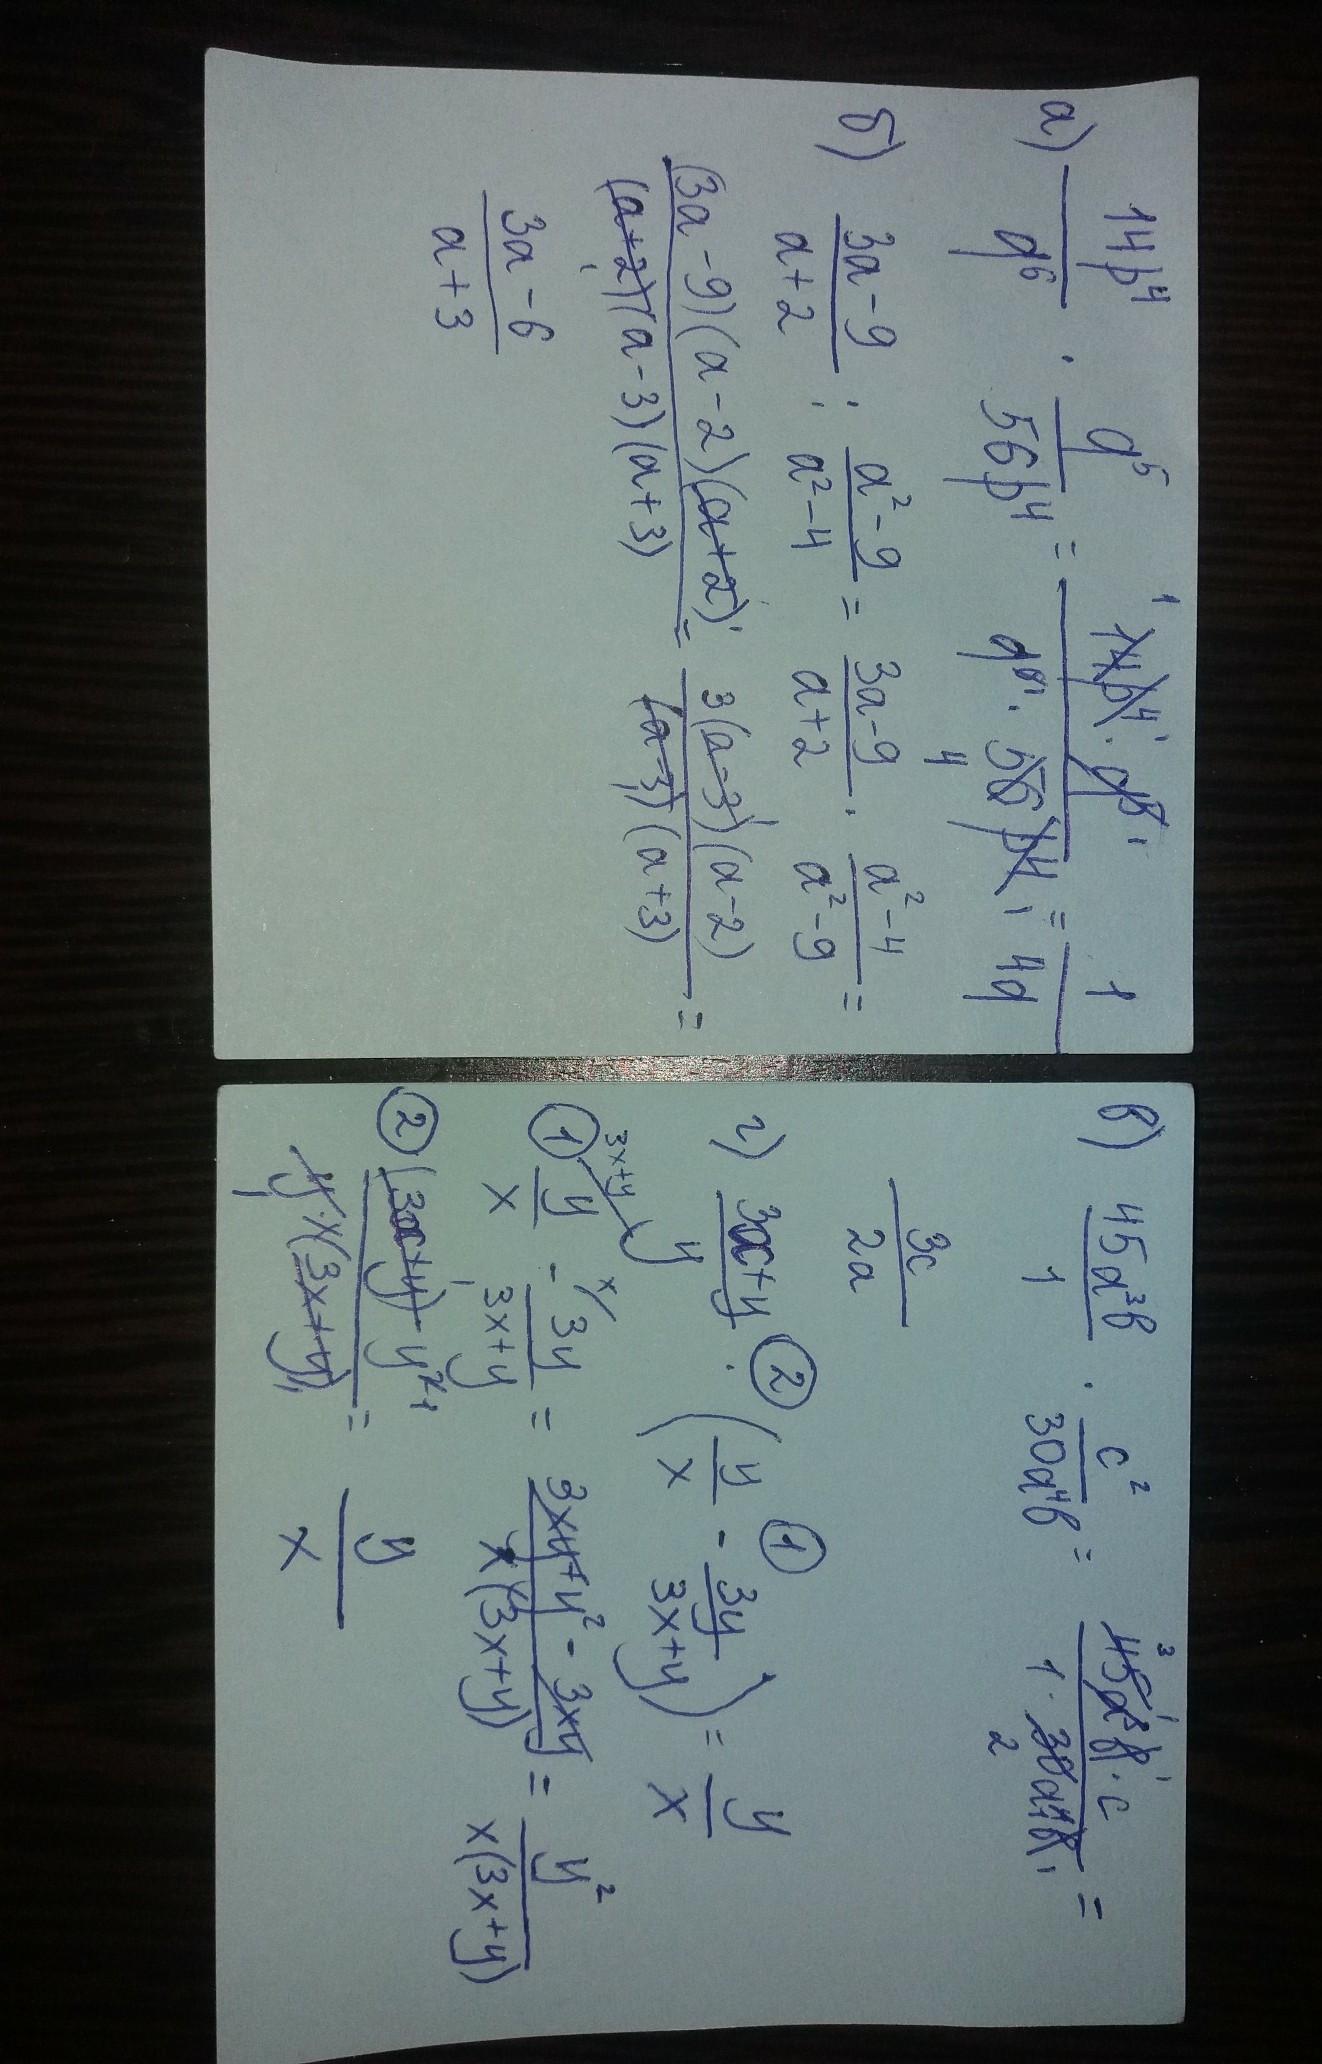 а) 14p⁴/q⁶ · q⁵/56p⁴ = 14p⁴ · q⁵/q⁶ · 56p⁴ = 1/4q
б) 3a-9/a+2 : a²-9/a²-4 = 3a-9/a+2 · a²-4/a²-9 =
(3a-9)(a-2)(a+2)/(a+2)(a-3)(a+3) = 3(a-3)(a-2)/(a-3)(a+3) =
3a-6/a+3
в) 45a³b/1 · c²/30a⁴b = =
3c/2a
г) 3x+y/y · (y/x - 3y/3x+y) = y/x
① y/x - 3y/3x+y = 3xy+y²-3xy/x(3x+y) = y²/x(3x+y)
② (3x+y) · y²/y · x(3x+y) = y/x